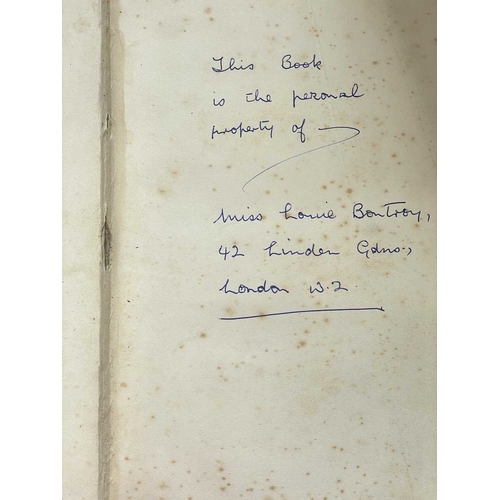 This Book
is the peronal
property of
Miss Louie Bontroy,
42 Linden Gdns.,
London W.2.